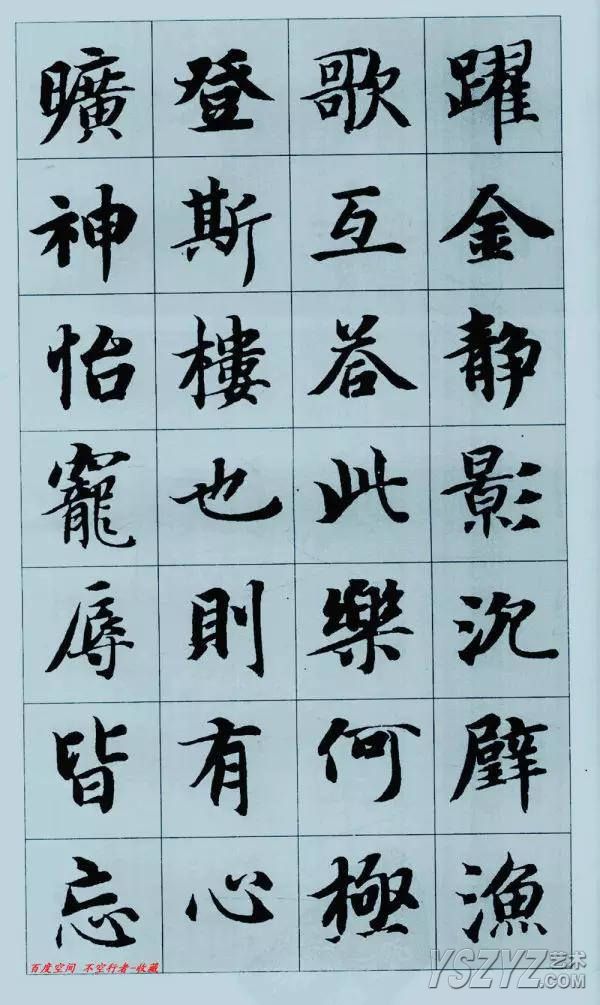 躍金静影沉璧漁
歌互答此樂何極
登斯樓也則有心
曠神怡寵辱皆忘
百度空间 不空行者-收藏
YSZYZ艺术.COM